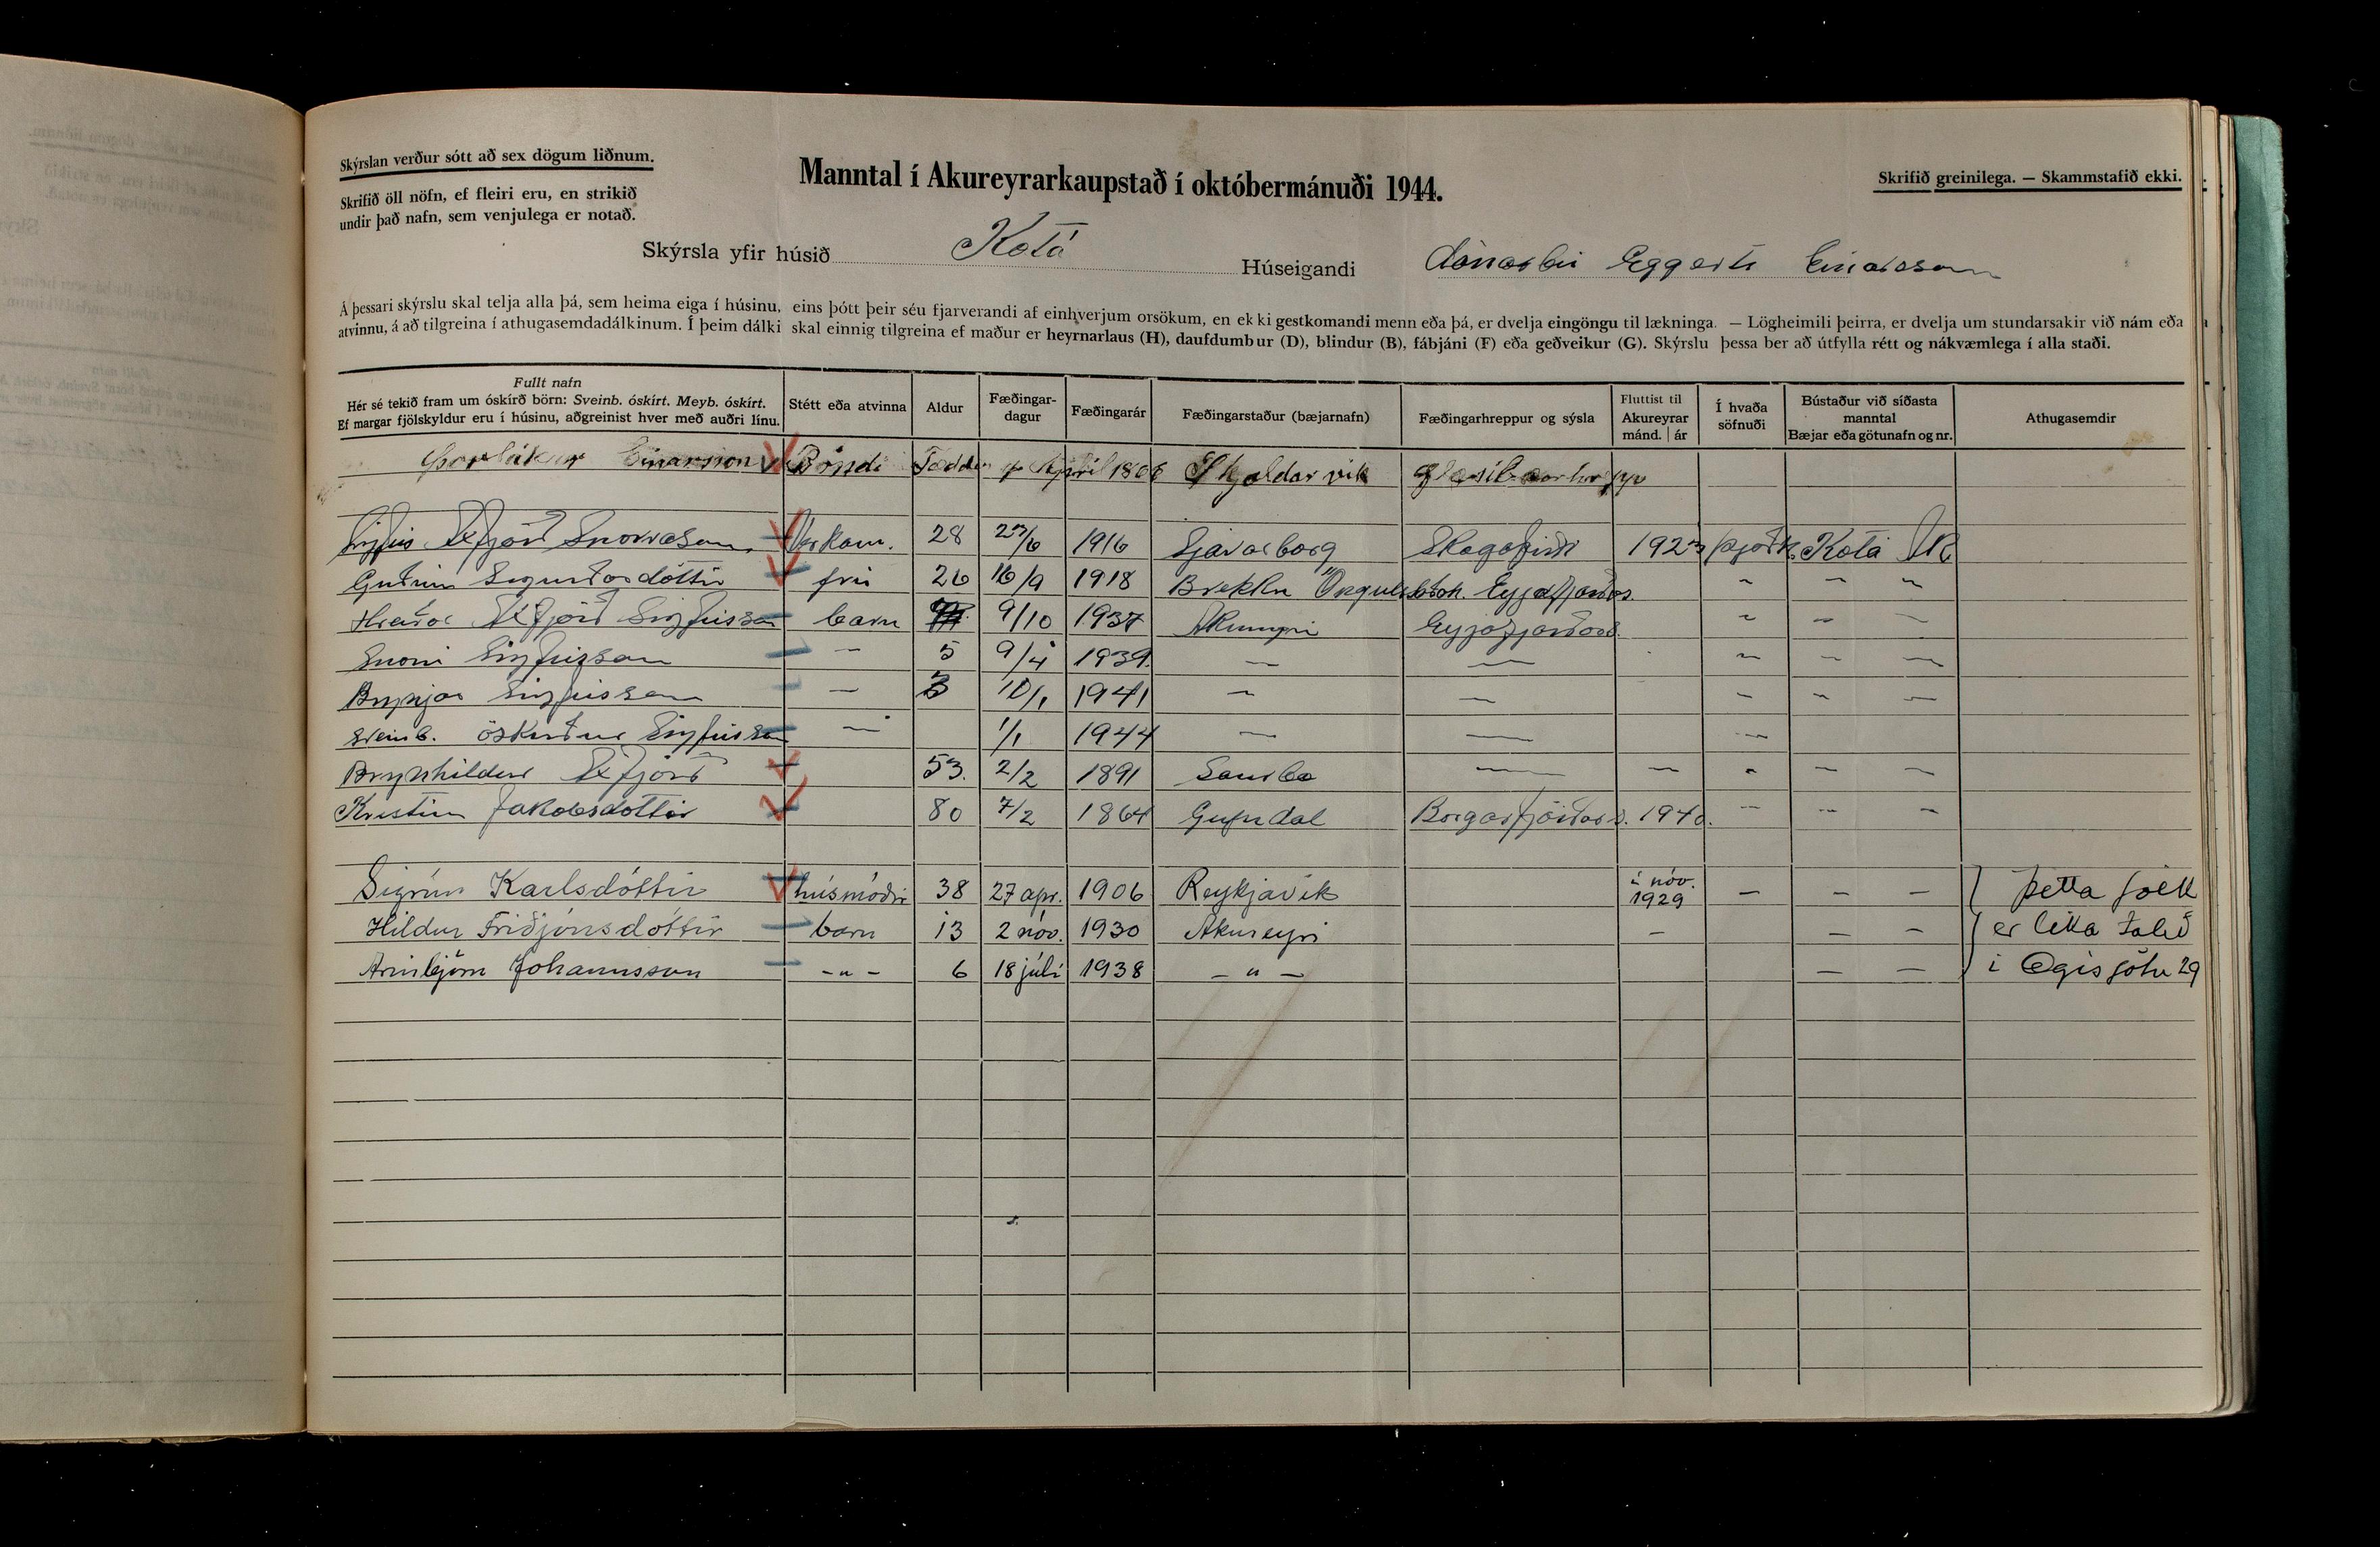 Skýrslan verður sótt að sex dögum liðnum.
Skrifið öll nöfn, ef fleiri eru, en strikið
undir það nafn, sem venjulega er notað.
Manntal í Akureyrarkaupstað í októbermánuði 1944.
Skrifið greinilega. — Skammstafið ekki.
Skýrsla yfir húsið Kotá Húseigandi Dánarbú Eggerts Einarssonar
Á þessari skýrslu skal telja alla þá, sem heima eiga í húsinu, eins þótt þeir séu fjarverandi af einhverjum orsökum, en ekki gestkomandi menn eða þá, er dvelja eingöngu til lækninga. — Lögheimili þeirra, er dvelja um stundarsakir við nám eða
atvinnu, á að tilgreina í athugasemdadálkinum. Í þeim dálki skal einnig tilgreina ef maður er heyrnarlaus (H), daufdumbur (D), blindur (B), fábjáni (F) eða geðveikur (G). Skýrslu þessa ber að útfylla rétt og nákvæmlega í alla staði.
Fullt nafn
Hér sé tekið fram um óskírð börn: Sveinb. óskírt. Meyb. óskírt.
Ef margar fjölskyldur eru í húsinu, aðgreinist hver með auðri línu.
Stétt eða atvinna
Aldur
Fæðingar-
dagur
Fæðingarár
Fæðingarstaður (bæjarnafn)
Fæðingarhreppur og sýsla
Fluttist til
Akureyrar
mánd. | ár
Í hvaða
söfnuði
Bústaður við síðasta
manntal
Bæjar eða götunafn og nr.
Athugasemdir
Þorlákur Einarsson Bóndi Fæddur Apríl Skjaldarvik Glæsibæarhrepp
Sigfús Axfjörð Snorrason Verkam. 28 23/6 1916 Sjávarborg Skagafirði 1923 þjóðk. Kotá Ak
Guðrún Sigurðardóttir frú 26 16/9 1918 Brekku Öngulstöh. Eyjafjarðars. ~ ~ ~
Hreiðar Axfjörð Sigfússon barn 9/10 1937 Akureyri Eyjafjarðars. ~ — —
Snorri Sigfússon — 5 9/4 1939 — — ~ — —
Brynjar Sigfússon — 3 10/1 1941 — — — ~ —
Sveinb. óskírður Sigfússon — 1/1 1944 — — —
Brynhildur Axfjörð 53. 2/2 1891 Saurbæ — — - — —
Kristín Jakobsdóttir 80 7/2 1864 Borgarfjarðars. 1940. — — —
Sigrún Karlsdóttir húsmóðir 38 27 apr. 1906 Reykjavík í nóv. 1929 — — — } Þetta fólk
Hildur Friðjónsdóttir barn 13 2 nóv. 1930 Akureyri — — — } er líka talið
Arinbjörn Jóhannsson -"- 6 18 júlí 1938 -"- — — } í Ægisgötu 29